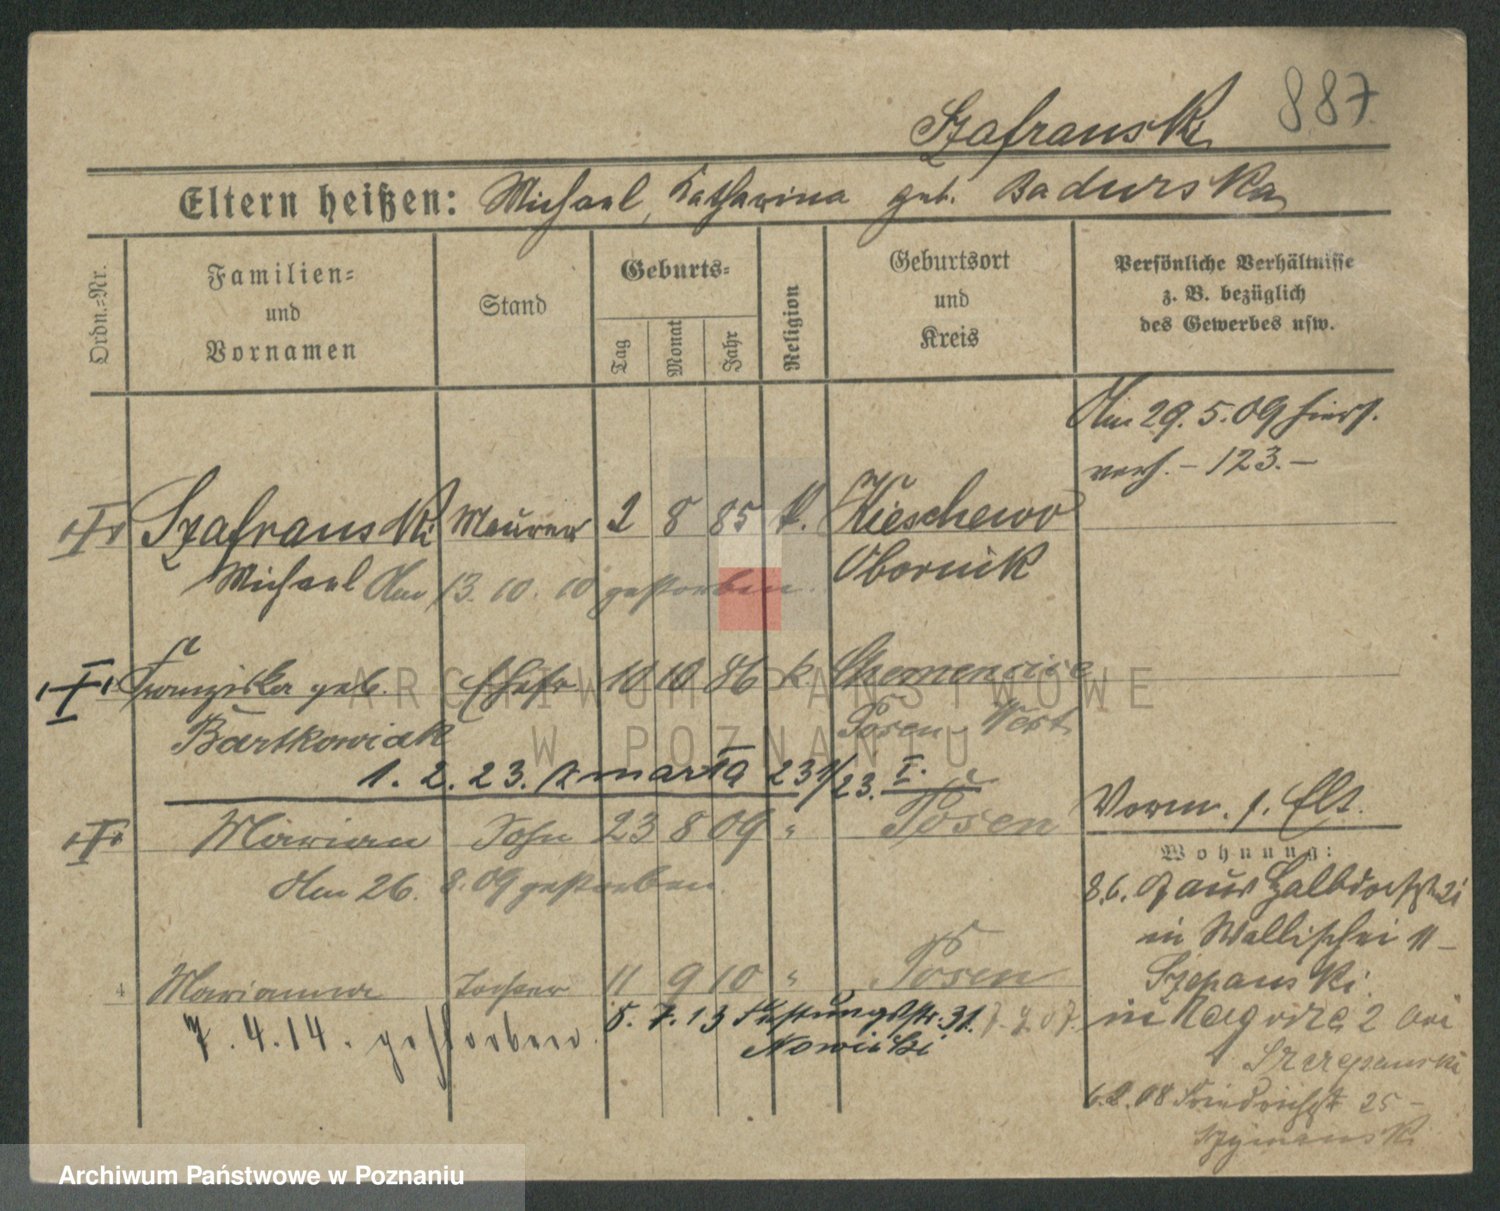 887
Szafranski
Eltern heißen: Michael, Katharina geb. Badurska
Ordn.=Nr.
Familien=
und
Vornamen
Stand
Geburts=
Tag
Monat
Jahr
Religion
Geburtsort
und
Kreis
Persönliche Verhältnisse
z. B. bezüglich
des Gewerbes usw.
Am 29. 5. 09 hier
verh. - 123. -
Szafranski Maurer 2 8 85 k. Kieschewo
Michael Am 13. 10. 10 gestorben. Obornik
Franziska geb. Ehefr 10 10 86 k
Bartkowiak Posen-West
1. 2. 23. zmarła 231/23. I.
Marian Sohn 23 8 09 " Posen
Am 26. 8. 09 gestorben.
Vorm. s. Elt.
Wohnung:
8. 6. 07 aus Halbdorfstr
in Wallischei 11-
Szepanski
4 Marianna Tochter 11 9 10 " Posen
7. 4. 14. gestorben.
5. 7. 13 Festungsstr. 31.
Nowicki
in Zagorze 2 bei
Szczepanski
6. 2. 08 Friedrichstr 25 -
Szymanski
ARCHIWUM PAŃSTWOWE
W POZNANIU
Archiwum Państwowe w Poznaniu